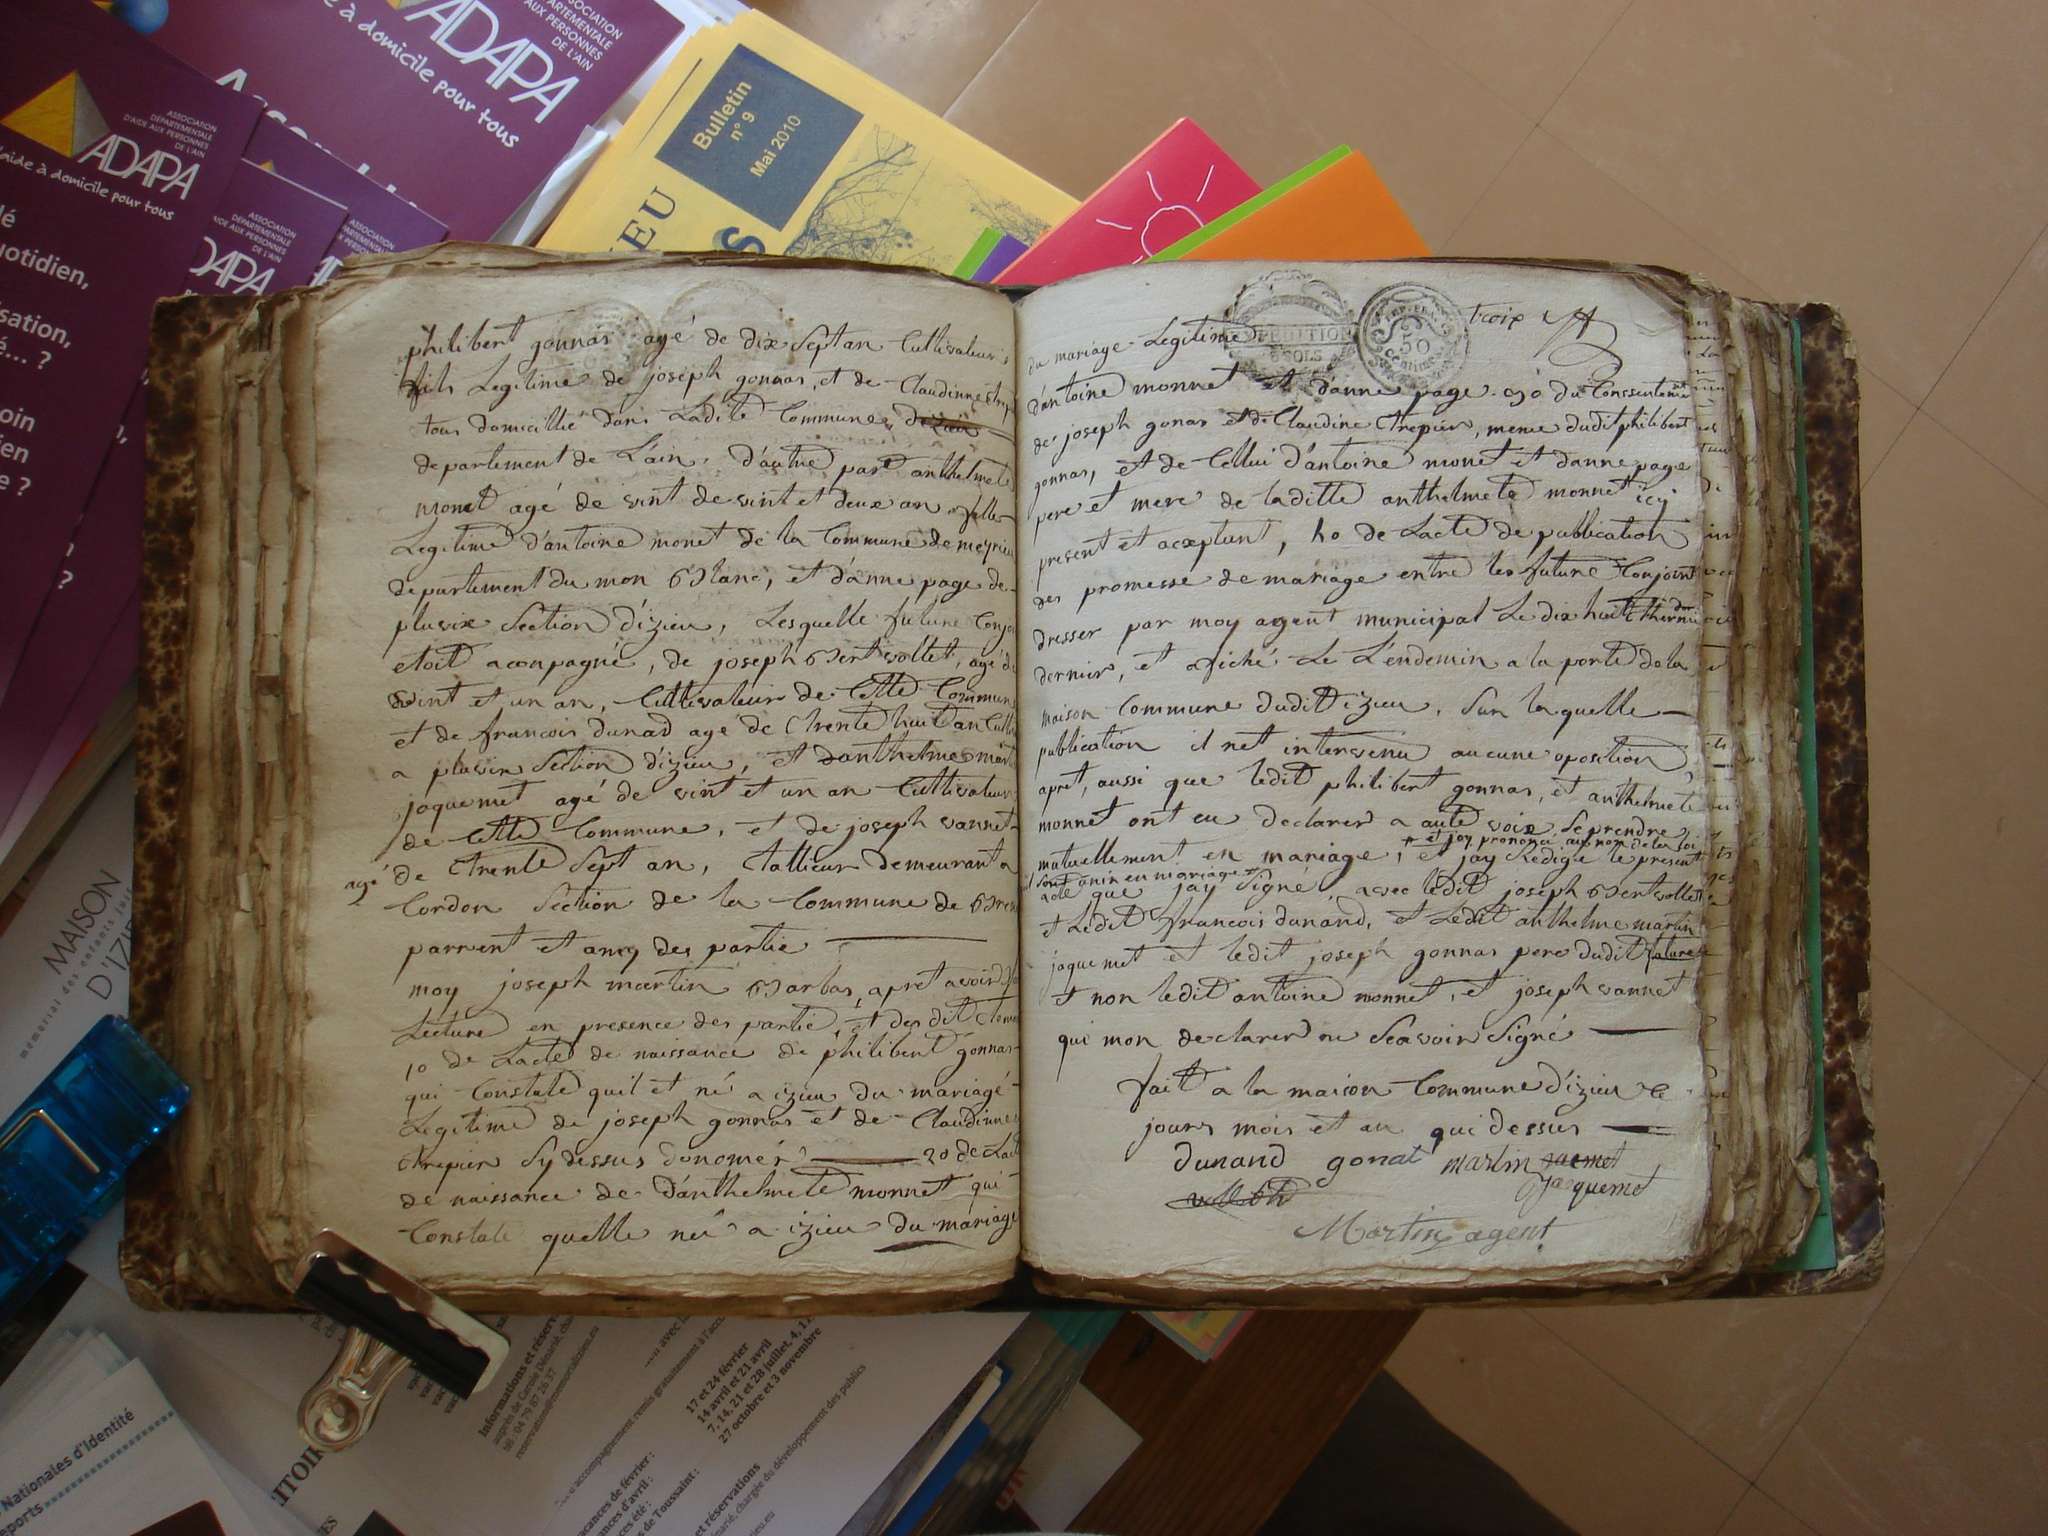 ASSOCIATION
DÉPARTEMENTALE
D'AIDE AUX PERSONNES
DE L'AIN
ADAPA
l'aide à domicile pour tous
quotidien,
ASSOCIATION
AUX PERSONNES
DE L'AIN
ADAPA
à domicile pour tous
Bulletin
n° 9
Mai 2010
philibert gonnar agé de dix Sept an Cultivateur
fils Legitime de joseph gonnar, et de Claudinne
tous domicillié dans Ladite Commune dizieu
departement de Lain, d'autre part anthelmete
monet agé de vint de vint et deux an fille
Legitime d'antoine monet de la Commune de meyrieu
departement du mon Blanc, et d'anne page de
pluvix Section d'izieu, Lesquelle future Conjoi
etoit acompagné, de joseph Bertvollet, agé de
vint et un an, Cultivateur de Cette Commune
et de francois dunad age de trente huit an Culti
a pluvix Section d'izieu, et danthelme martin
jaquemet agé de vint et un an Cultivateur
de Cette Commune, et de joseph vannet
agé de trente Sept an, tallieur demeurant a
Cordon Section de la Commune de Bren
parrent et amy des partie
moy joseph martin Barbar, apret avoir f
Lecture en presence des partie, et des dit temo
10 de Lacte de naissance de philibert gonnar
qui Constate quil et né a izieu du mariagé
Legitime de joseph gonnar et de Claudinne
trepier Sy dessus denomér 20 de Lact
de naissance de d'anthelmete monnet qui
Constate quelle né a izieu du mariage
troix
EXPEDITION
SOLS
REP. FRA.
50
Centimes
du mariage Legitime
d'antoine monnet et d'anne page 030 du Conssentement
de joseph gonar et de Claudine trepier, meme dudit philibert
gonnar, et de Cellui d'antoine monet et danne page
pere et mere de laditte anthelmete monnet icy
present et aceptant, 40 de Lacte de publication
des promesse de mariage entre les future Conjoint
dresser par moy agent municipal Le dix huit thermidor
dernier, et afiché Le L'endemin a la porte de la
maison Commune dudit izieu, Sur laquelle
publication il net intervenu aucune oposition,
apret, aussi que ledit philibert gonnar, et anthelmete
monnet ont eu declarer a aute voix Se prendre
mutuellement en mariage, # et jay Redigé le present
# et joy prononcé au nom de la loi
Sont unir en mariage #
acte que jay Signé avec ledit joseph Bertvollet
et Ledit francois dunand, et Ledit anthelme martin
jaquemet et ledit joseph gonnar pere dudit future
et non ledit antoine monnet, et joseph vannet
qui mon declarer ne Scavoir Signé
fait a la maison Commune d'izieu le
jours mois et an que dessus
dunand gonat martin jacmet
jacquemet
Martin agent
MAISON
D'IZIEU
Informations et réserv
17 et 24 février
14 avril et 21 avril
7, 14, 21 et 28 juillet, 4, 1
27 octobre et 3 novembre
de Toussaint :
et réservations
chargée du développement des publics
Nationales d'Identité